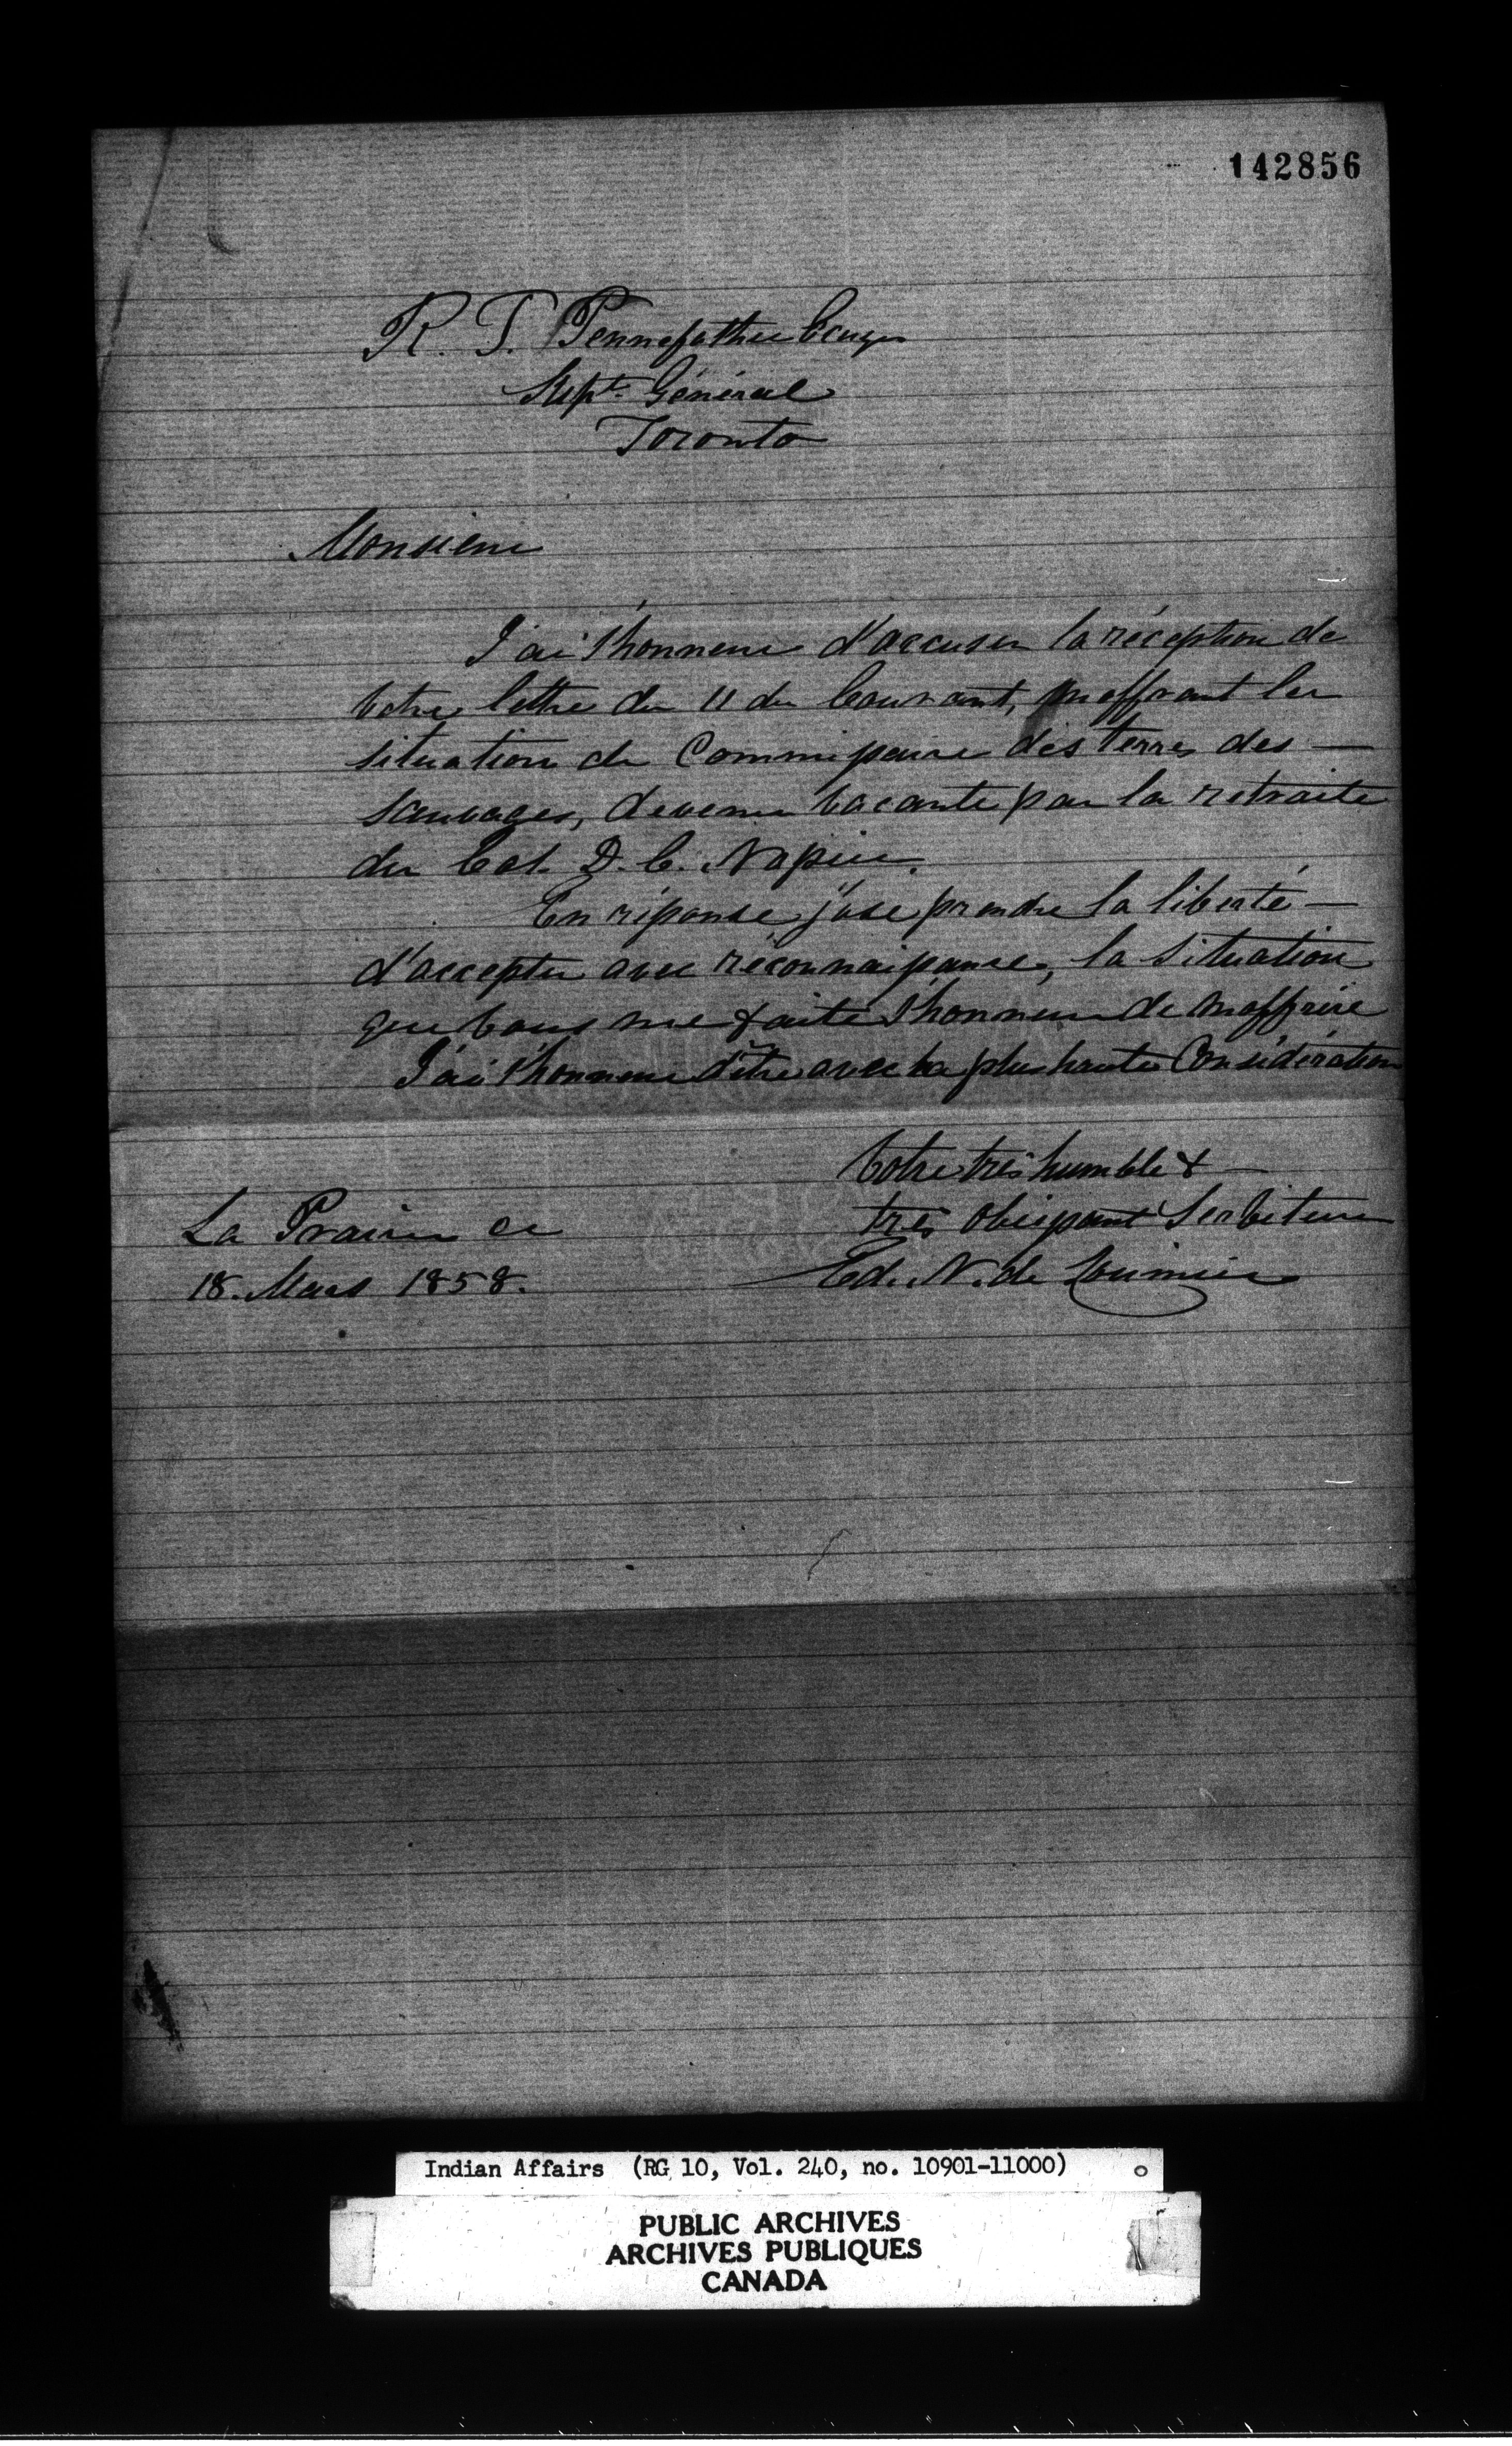 142856
R. T. Pennefather Ecuyer
Supt. Général
Toronto
Monsieur
J'ai l'honneur d'accuser la réception de
votre lettre du 11 du Courant, m'offrant la
situation de Commissaire des terres des —
sauvages, devenue vacante par la retraite
du Col. D. C. Napier.
En réponse j'ose prendre la liberté —
d'accepter avec réconnaissance, la situation
que vous me faite l'honneur de m'offrire
J'ai l'honneur d'être avec la plus haute Considération
Votre très humble &
très Obeissant Serviteur
Ed. N. de Lorimier
La Prairie ce
18. Mars 1858.
Indian Affairs (RG 10, Vol. 240, no. 10901-11000)
PUBLIC ARCHIVES
ARCHIVES PUBLIQUES
CANADA